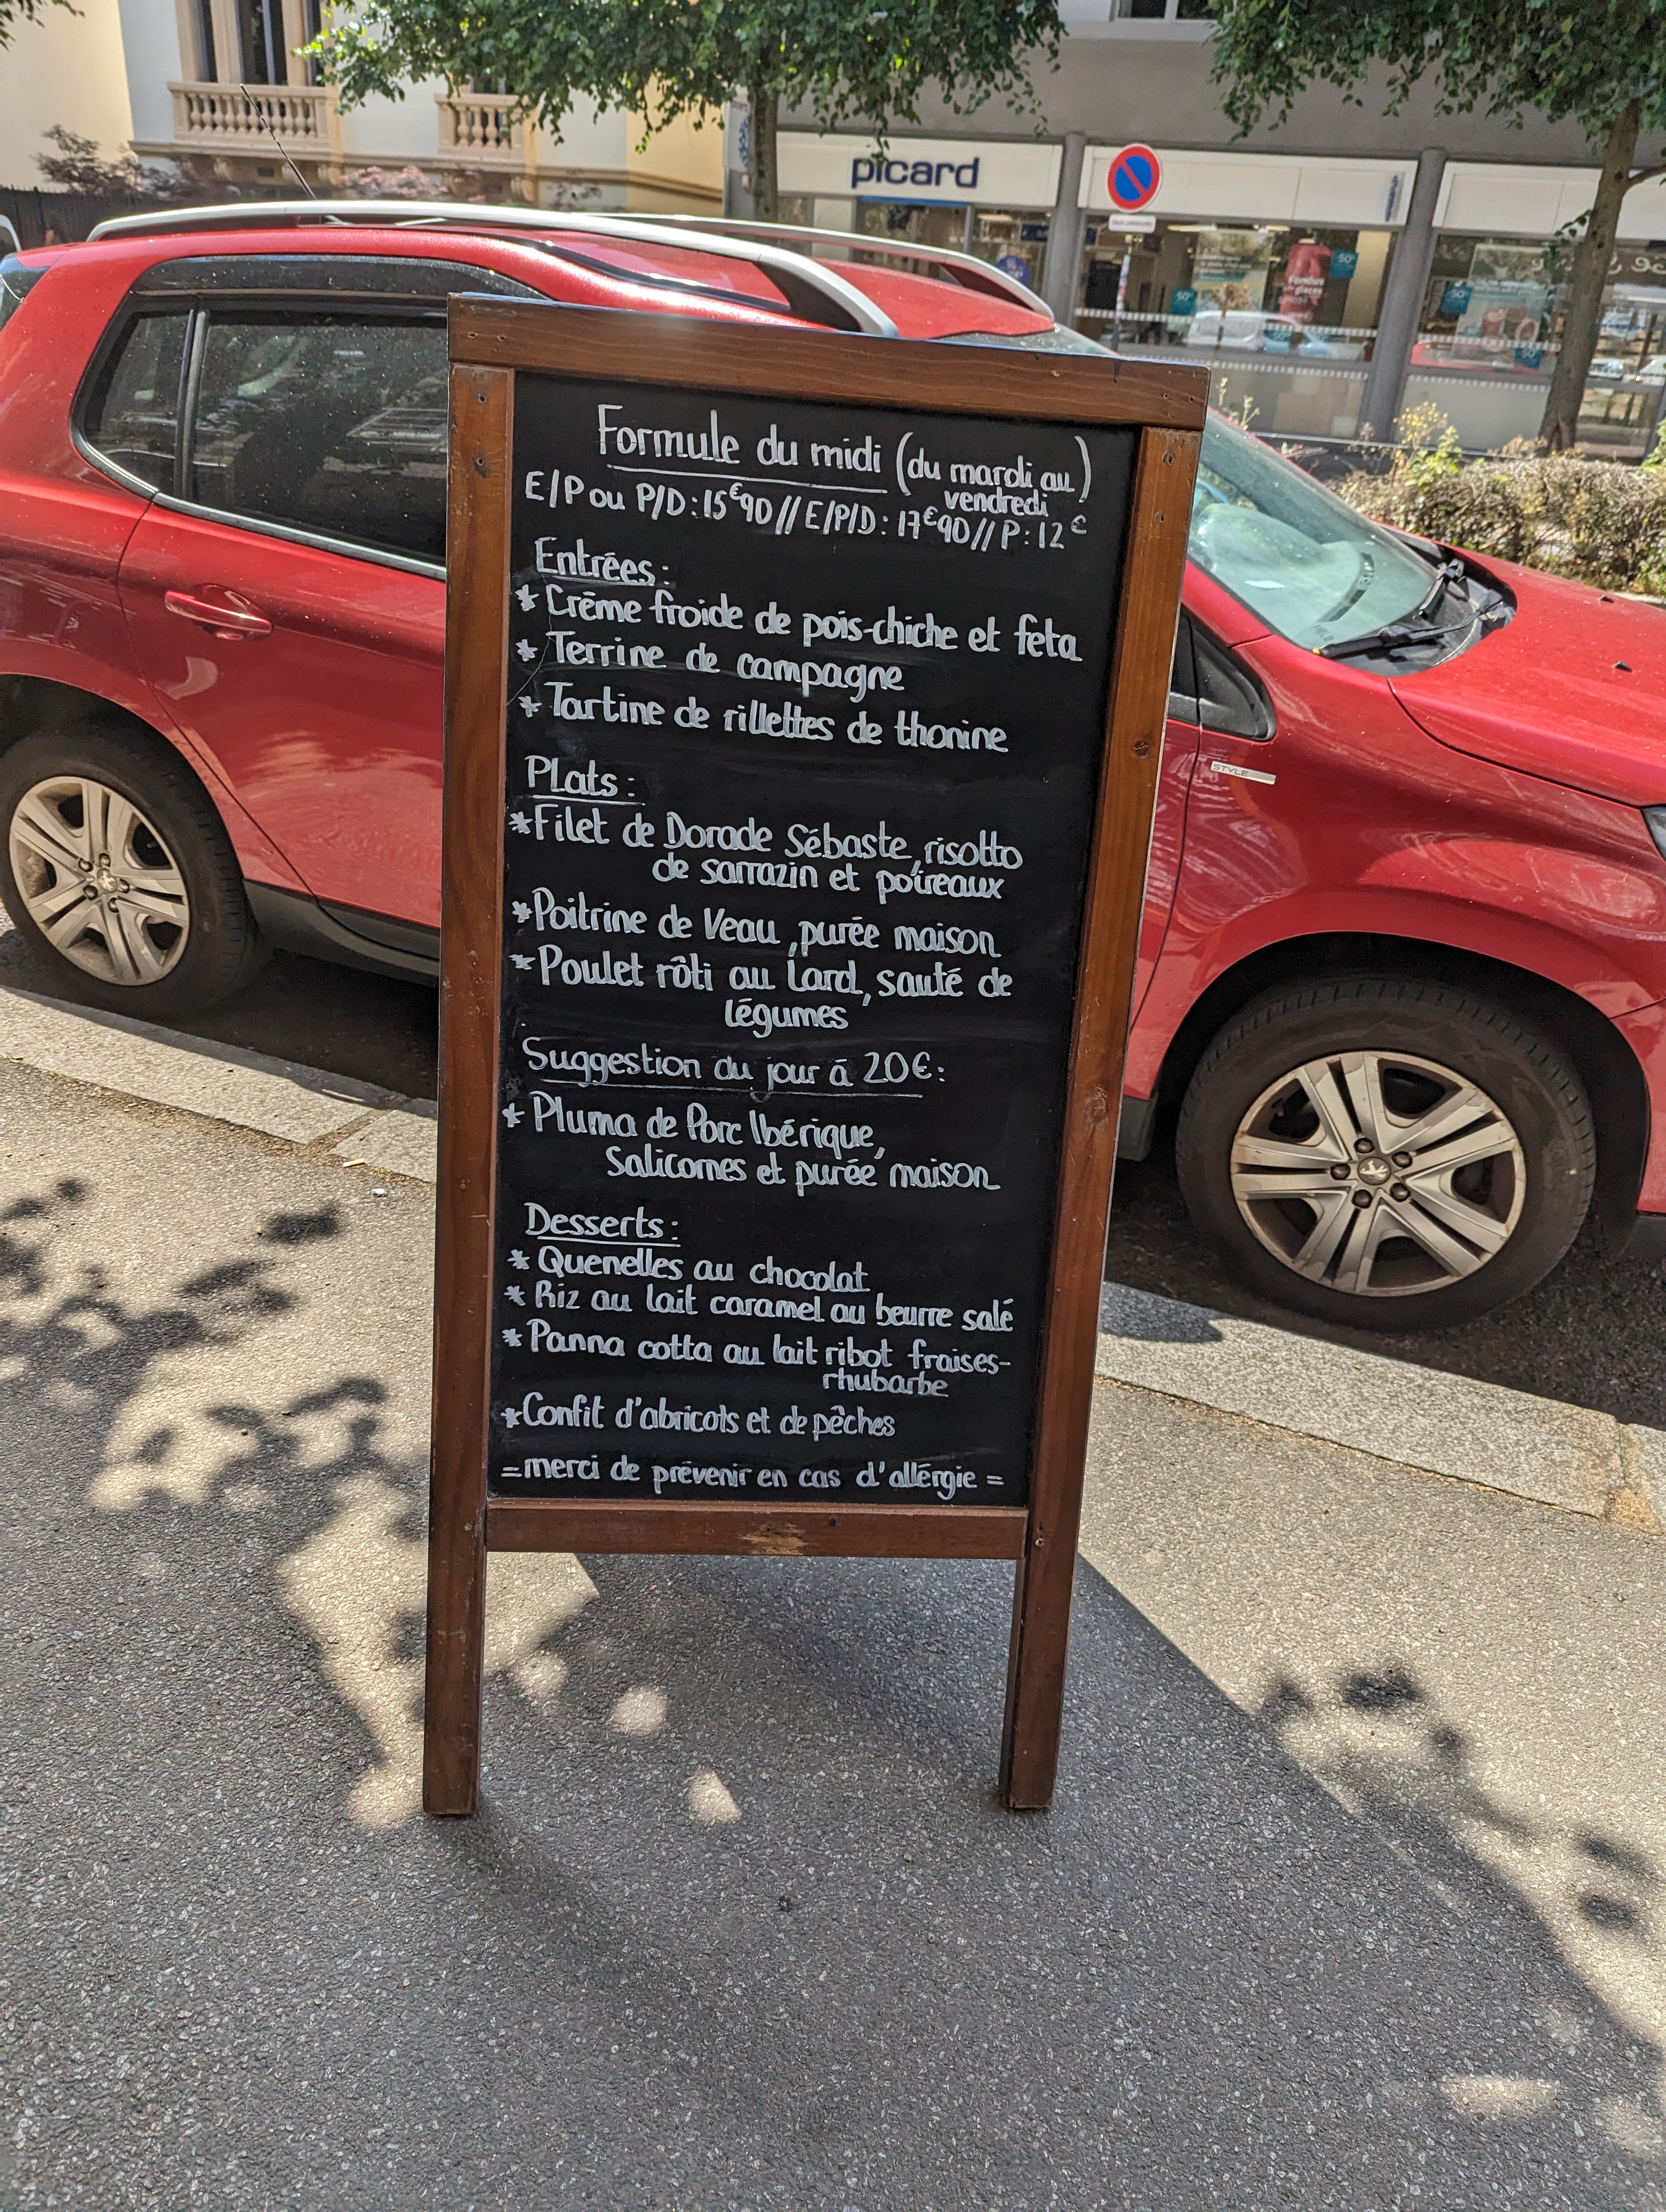 picard
Formule du midi (du mardi au
vendredi)
E/P ou P/D : 15€90 // E/P/D : 17€90 // P : 12€
Entrées :
* Crème froide de pois-chiche et feta
* Terrine de campagne
* Tartine de rillettes de thonine
Plats :
* Filet de Dorade Sébaste, risotto
de sarrazin et poireaux
* Poitrine de Veau, purée maison
* Poulet rôti au Lard, sauté de
légumes
Suggestion du jour à 20€ :
* Pluma de Porc Ibérique,
Salicornes et purée maison
Desserts :
* Quenelles au chocolat
* Riz au lait caramel au beurre salé
* Panna cotta au lait ribot fraises-
rhubarbe
* Confit d'abricots et de pêches
= merci de prévenir en cas d'allérgie =
STYLE